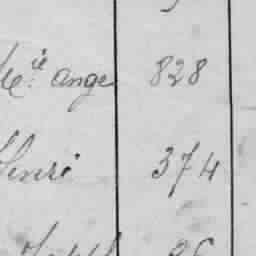 Mie ange 828
Henri 374